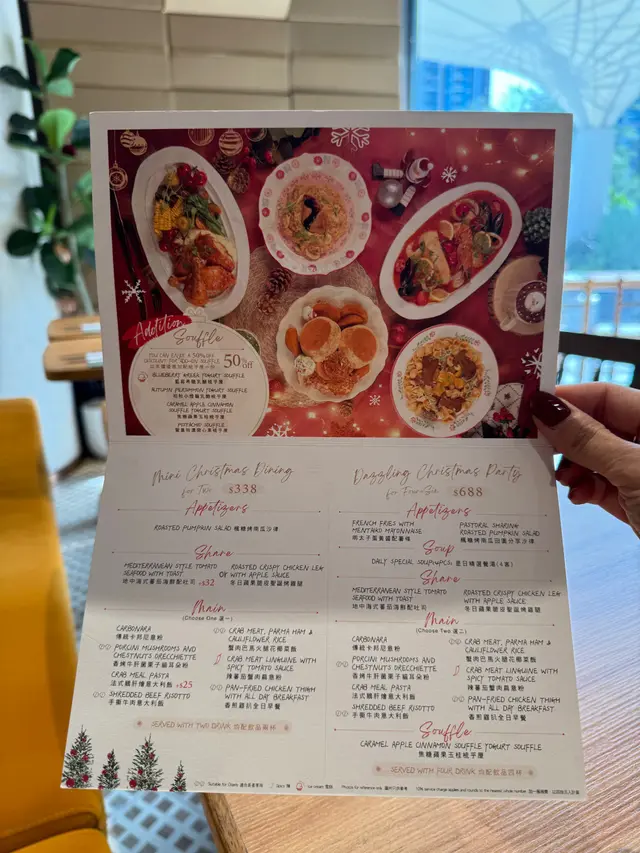 Addition
Souffle
YOU CAN ENJOY A 50% OFF
DISCOUNT FOR ADD-ON SOUFFLE
50% off
BLUEBERRY HAZEL YOGURT SOUFFLE
AUTUMN PERSIMMON YOGURT SOUFFLE
CARAMEL APPLE CINNAMON
SOUFFLE YOGURT SOUFFLE
焦糖蘋果玉桂梳乎厘
PISTACHIO SOUFFLE
Mini Christmas Dining
for Two $338
Appetizers
ROASTED PUMPKIN SALAD 楓糖烤南瓜沙律
Share
MEDITERRANEAN STYLE TOMATO
SEAFOOD WITH TOAST
地中海式蕃茄海鮮配吐司 +$32
OR
ROASTED CRISPY CHICKEN LEG
WITH APPLE SAUCE
冬日蘋果脆皮聖誕烤雞腿
Main
(Choose One 選一)
CARBONARA
傳統卡邦尼意粉
PORCINI MUSHROOMS AND
CHESTNUTS ORECCHIETTE
香烤牛肝菌栗子貓耳朵粉
CRAB MEAL PASTA
法式鵝肝燴意大利飯 +$25
SHREDDED BEEF RISOTTO
手撕牛肉意大利飯
CRAB MEAT, PARMA HAM &
CAULIFLOWER RICE
蟹肉巴馬火腿花椰菜飯
CRAB MEAT LINGUINE WITH
SPICY TOMATO SAUCE
辣蕃茄蟹肉扁意粉
PAN-FRIED CHICKEN THIGH
WITH ALL DAY BREAKFAST
香煎雞扒全日早餐
SERVED WITH TWO DRINK 自配飲品兩杯
Dazzling Christmas Party
for Four-Six $688
Appetizers
FRENCH FRIES WITH
MENTAIKO MAYONNAISE
明太子蛋黃醬配薯條
PASTORAL SHARING
ROASTED PUMPKIN SALAD
楓糖烤南瓜田園分享沙律
Soup
DAILY SPECIAL SOUP(4PCS) 是日精選餐湯(4客)
Share
MEDITERRANEAN STYLE TOMATO
SEAFOOD WITH TOAST
地中海式蕃茄海鮮配吐司
ROASTED CRISPY CHICKEN LEG
WITH APPLE SAUCE
冬日蘋果脆皮聖誕烤雞腿
Main
(Choose Two 選二)
CARBONARA
傳統卡邦尼意粉
PORCINI MUSHROOMS AND
CHESTNUTS ORECCHIETTE
香烤牛肝菌栗子貓耳朵粉
CRAB MEAL PASTA
法式鵝肝燴意大利飯
SHREDDED BEEF RISOTTO
手撕牛肉意大利飯
CRAB MEAT, PARMA HAM &
CAULIFLOWER RICE
蟹肉巴馬火腿花椰菜飯
CRAB MEAT LINGUINE WITH
SPICY TOMATO SAUCE
辣蕃茄蟹肉扁意粉
PAN-FRIED CHICKEN THIGH
WITH ALL DAY BREAKFAST
香煎雞扒全日早餐
Souffle
CARAMEL APPLE CINNAMON SOUFFLE YOGURT SOUFFLE
焦糖蘋果玉桂梳乎厘
SERVED WITH FOUR DRINK 自配飲品四杯
Photos for reference only.
10% service charge applies and rounds to the nearest whole number.